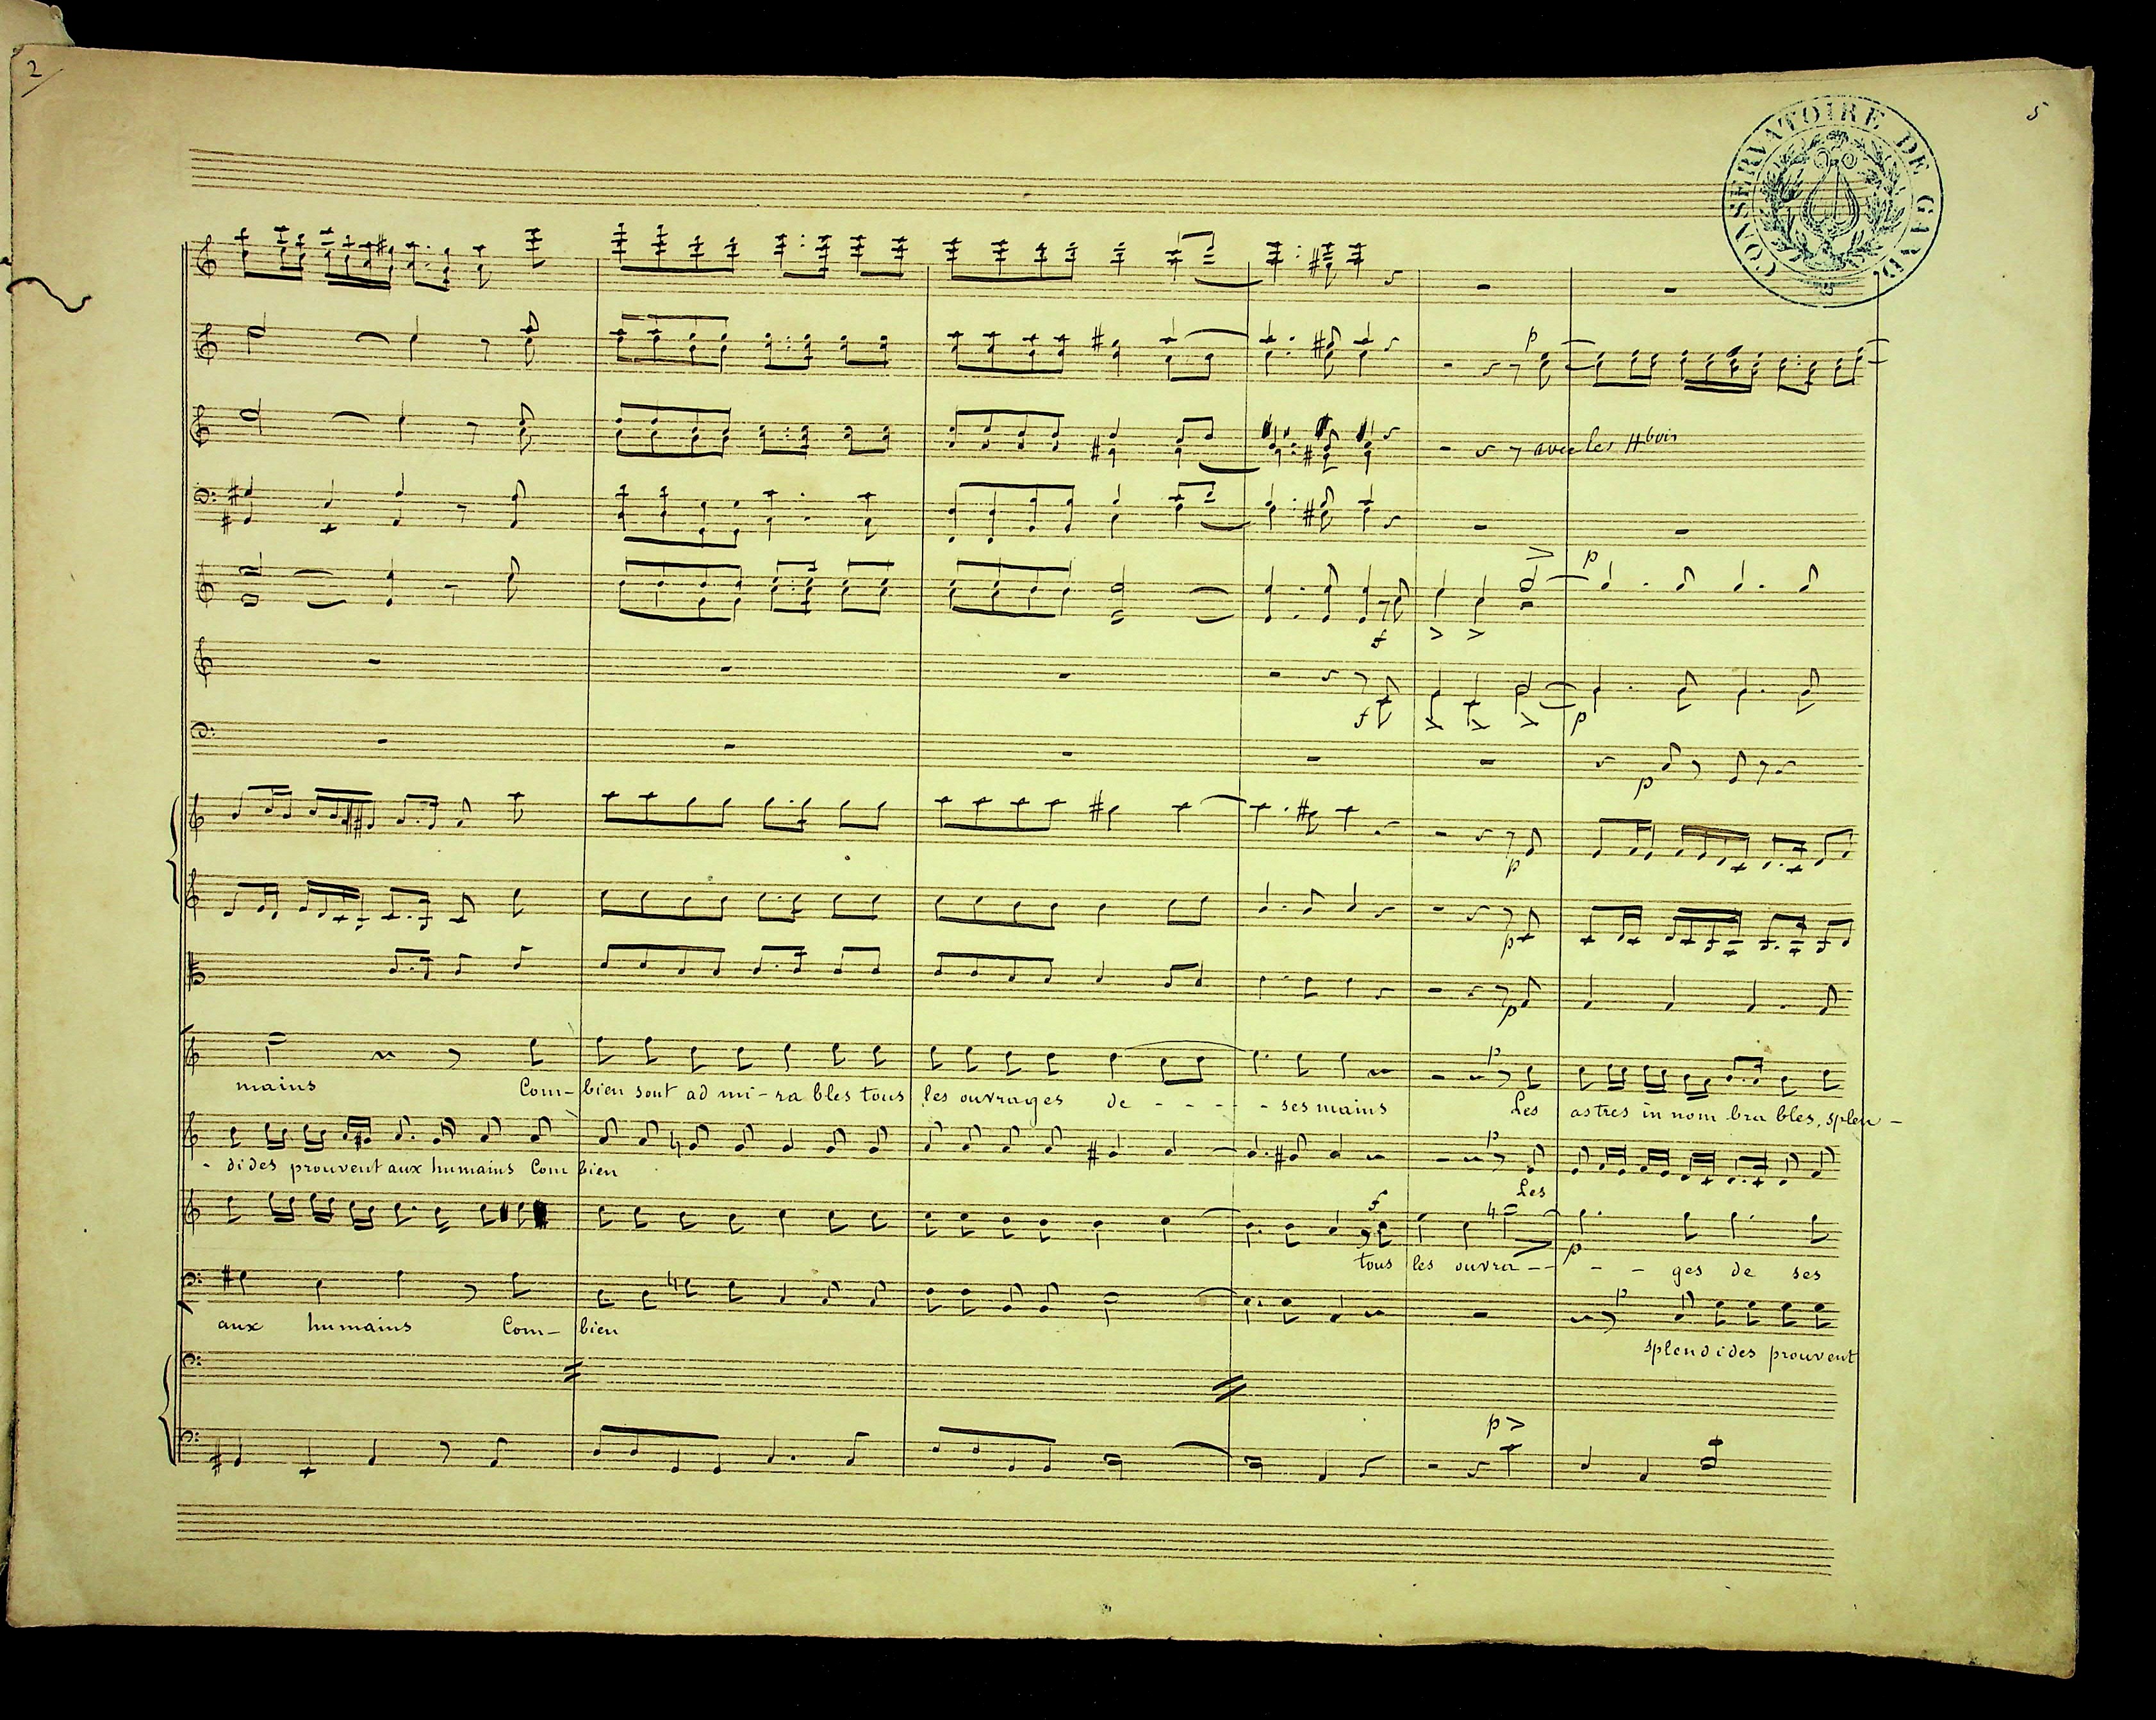 2
5
CONSERVATOIRE DE GAND
p
avec les Hbois
p
f
f
p
p
p
p
p
p
mains Com- bien sont ad mi-ra bles tous les ouvrages de - - - - - ses mains Les astres in nom bra bles, splen -
p
- dides prouvent aux humains Com bien Les
f
p
tous les ouvra - - - - ges de ses
p
aux humains Com- bien splendides prouvent
p